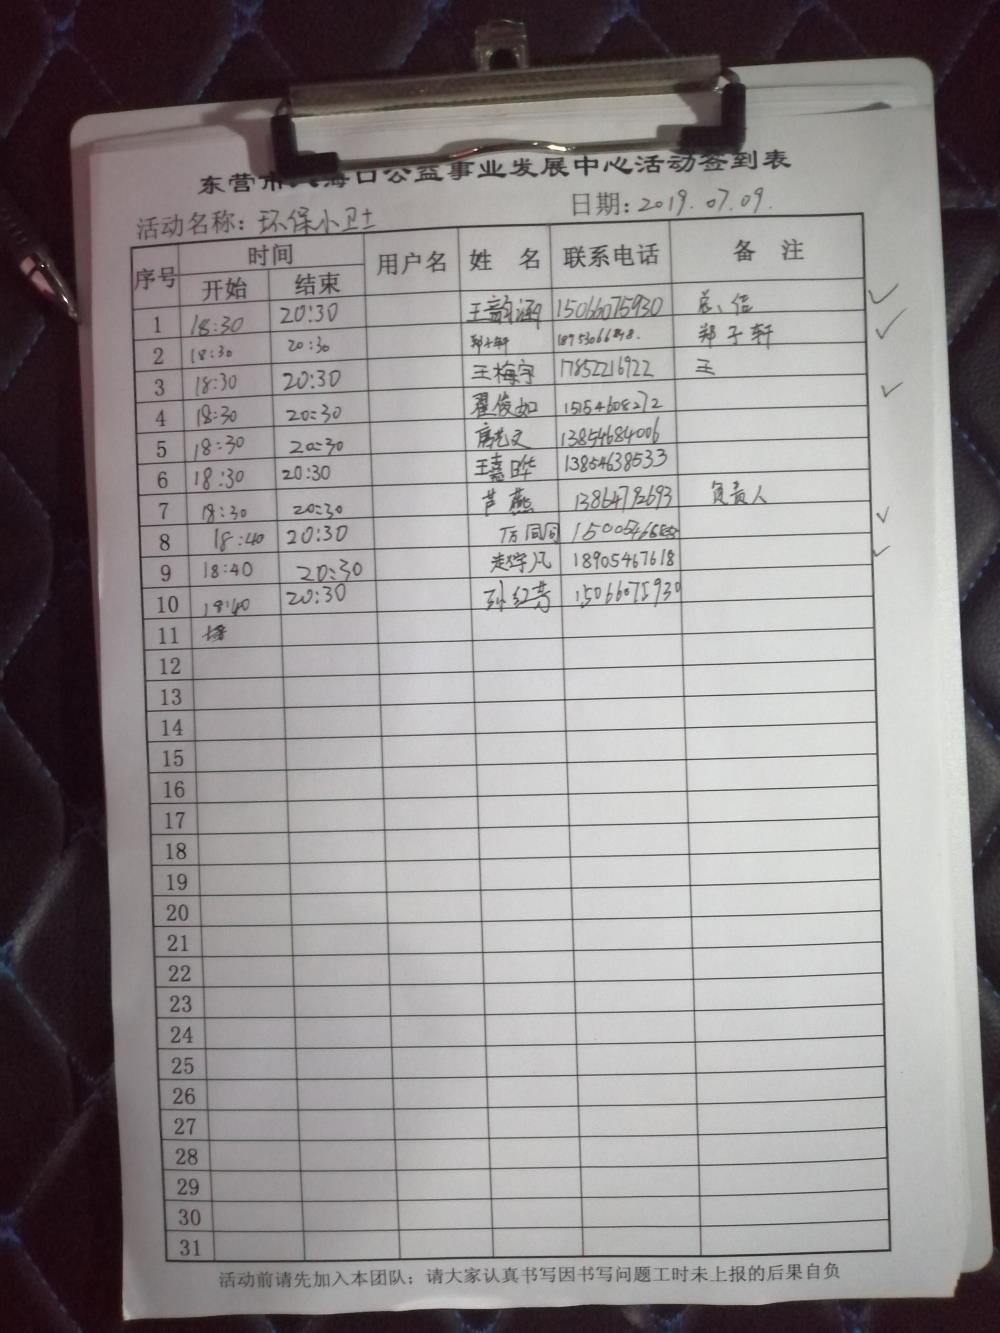 东营市 海口公益事业发展中心活动签到表
活动名称: 环保小卫士 日期: 2019.07.09.
序号 时间 用户名 姓 名 联系电话 备 注
开始 结束
1 18:30 20:30 王韵涵 15066075930
2 18:30 20:30 郑子轩 郑子轩
3 18:30 20:30 王梅宇 17852216922 王
4 18:30 20:30 翟俊如 15154608272
5 18:30 20:30 13854684006
6 18:30 20:30 王嘉晔 13854638533
7 18:30 20:30 芦燕 13864792693 负责人
8 18:40 20:30 万同同
9 18:40 20:30 凡 18905467618
10 18:40 20:30 孙红芳 15066075930
11
12
13
14
15
16
17
18
19
20
21
22
23
24
25
26
27
28
29
30
31
活动前请先加入本团队;请大家认真书写因书写问题工时未上报的后果自负